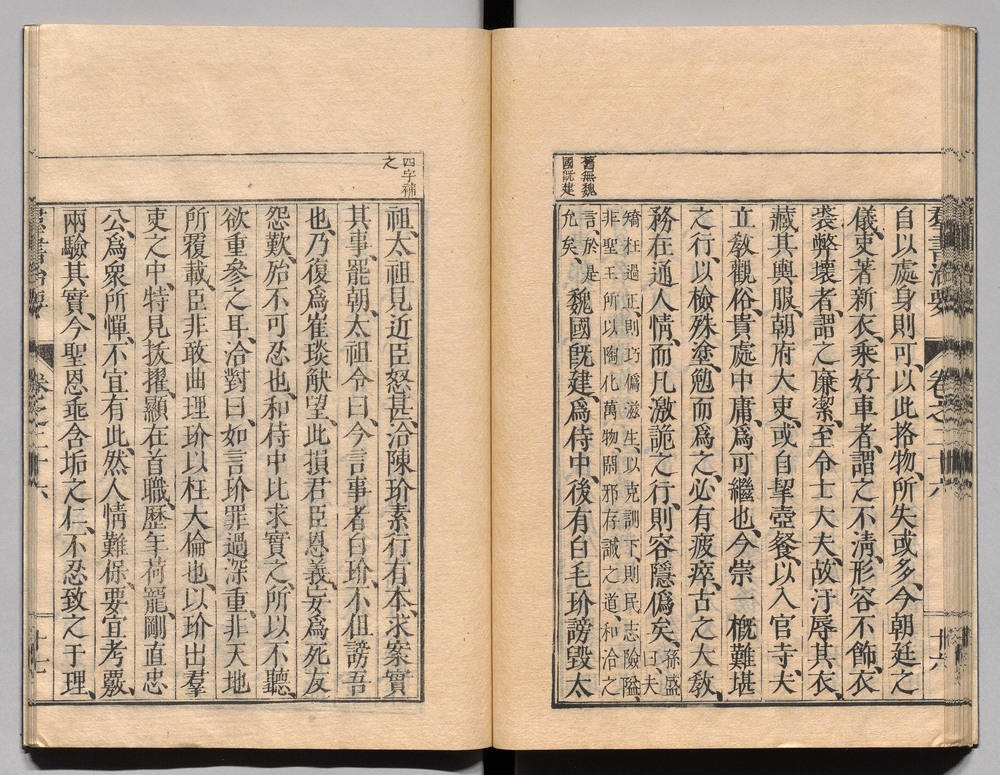 羣書治要 卷之二十六 卅六
舊無魏
國旣建
自以處身則可、以此挌物、所失或多、今朝廷之
儀、吏著新衣、乘好車者、謂之不清、形容不飾、衣
裘弊壞者、謂之廉潔、至令士大夫、故汙辱其衣、
藏其輿服、朝府大吏、或自挈壺餐、以入官寺、夫
立敎觀俗、貴處中庸、爲可繼也、今崇一槪難堪
之行、以檢殊塗、勉而爲之、必有疲瘁、古之大敎、
務在通人情、而凡激詭之行、則容隱僞矣、孫盛
曰夫
矯枉過正、則巧僞滋生、以克訓下、則民志險隘、
非聖王所以陶化萬物、閑邪存誠之道、和洽之
言、於是
允矣、
魏國旣建、爲侍中、後有白毛玠謗毀太
四字補
之
祖、太祖見近臣怒甚、洽陳玠素行有本、求案實
其事、罷朝、太祖令曰、今言事者白玠、不但謗吾
也、乃復爲崔琰觖望、此損君臣恩義、妄爲死友
怨歎、殆不可忍也、和侍中比求實之、所以不聽、
欲重參之耳、洽對曰、如言玠罪過深重、非天地
所覆載、臣非敢曲理玠以枉大倫也、以玠出羣
吏之中、特見拔擢、顯在首職、歷年荷寵、剛直忠
公、爲衆所憚、不宜有此、然人情難保、要宜考覈、
兩驗其實、今聖恩垂含垢之仁、不忍致之于理、
羣書治要 卷之二十六 卅七